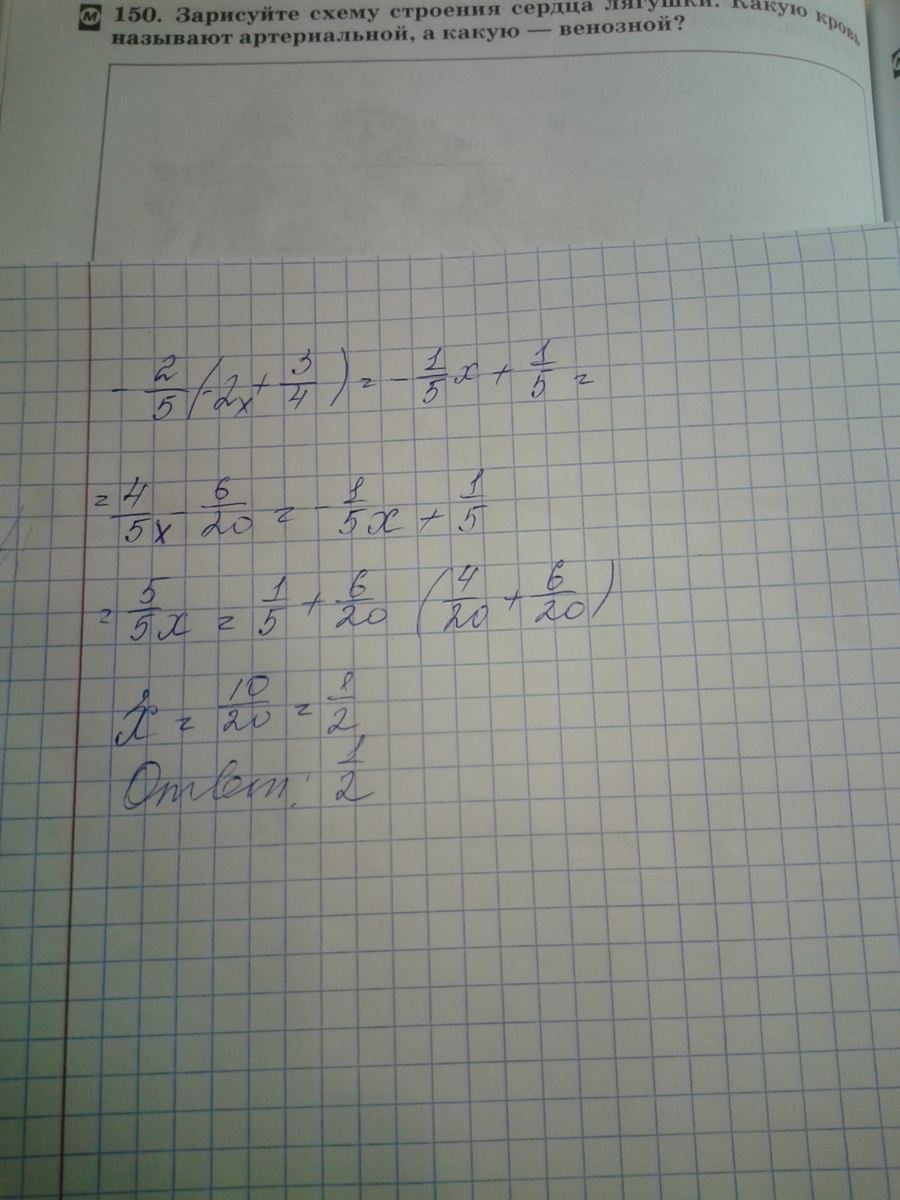 150. Зарисуйте схему строения сердца лягушки. Какую кровь
называют артериальной, а какую — венозной?
- 2/5 (-2x + 3/4) = - 1/5 x + 1/5 =
= 4/5 x - 6/20 = - 1/5 x + 1/5
= 5/5 x = 1/5 + 6/20 (4/20 + 6/20)
x = 10/20 = 1/2
Ответ: 1/2